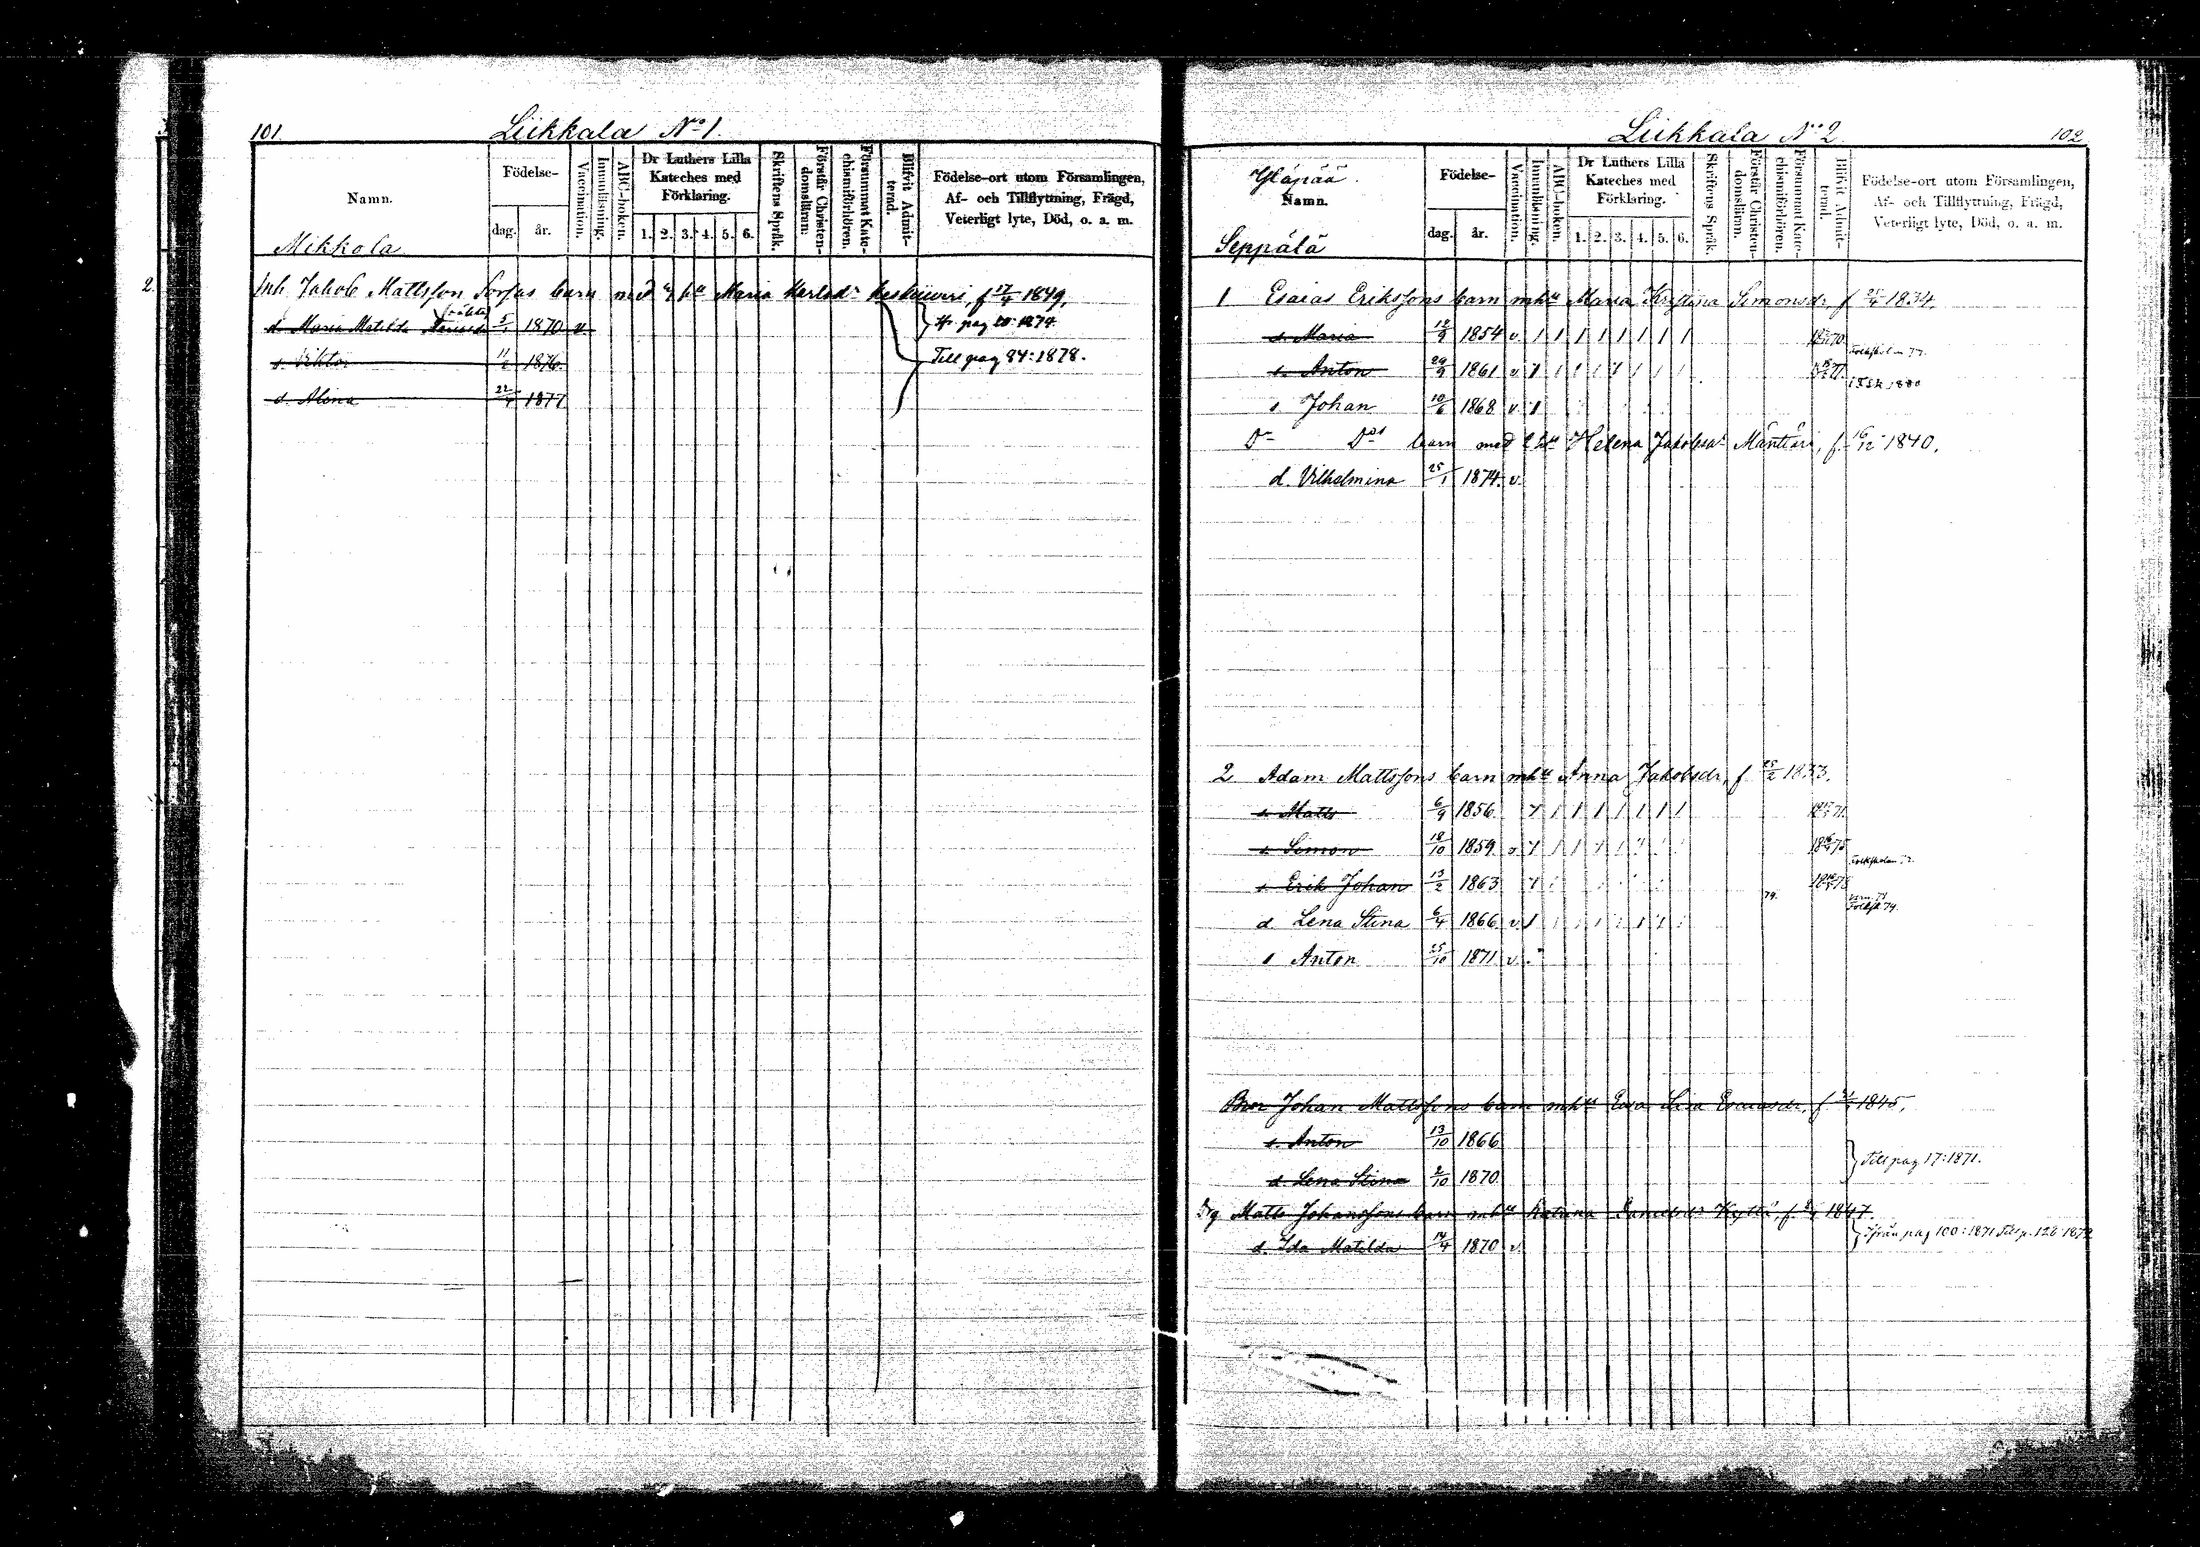 101.
Liikkala No 1.
Namn.
Födelse-
dag.
år.
Vaccination.
Innanläsning.
ABC-boken.
Dr Luthers Lilla
Kateches med
Förklaring.
1. 2. 3. 4. 5. 6.
Skriftens Språk.
Förstår Christen-
domsläran:
Försummat Kate-
chismiförhören.
Blifvit Admit-
terad.
Födelse-ort utom Församlingen,
Af- och Tillflyttning, Frägd,
Veterligt lyte, Död, o. a. m.
Mikkola
2.
Inh Jakob Mattsson Sorsas barn med hu Maria Karlsdr f 17/4 1849.
d. Maria Matilda 5/1 1870 v
pag 20: 1874
s. Viktor 11/2 1876.
Till pag 84: 1878.
d. Alina 22/4 1877
Liikkala No 2
102
Yläpää.
Namn.
Seppälä
Födelse-
dag.
år.
Vaccination.
Innanläsning.
ABC-boken.
Dr Luthers Lilla
Kateches med
Förklaring.
1. 2. 3. 4. 5. 6.
Skriftens Språk.
Förstår Christen-
domsläran.
Försummat Kate-
chismiförhören.
Blifvit Admit-
terad.
Födelse-ort utom Församlingen,
Af- och Tillflyttning, Frägd,
Veterligt lyte, Död, o. a. m.
1 Esaias Erikssons barn mhu Maria Kristina Simonsdr f 25/4 1834.
d. Maria 12/9 1854 v / / / / / / / /
s. Anton 29/9 1861 v / / / / / / / /
s Johan 10/6 1868 v /
Do Dos barn med 2 hu Helena Jakobsdr Mänttäri, f. 16/12 1840.
d. Vilhelmina 25/1 1874. v.
2 Adam Mattssons barn mhu Anna Jakobsdr, f 25/2 1833.
s. Matts 6/9 1856.
s. Simon 18/10 1859 v
Folkskolan
s. Erik Johan 13/2 1863
74.
Folksk 74.
d. Lena Stina 6/4 1866 v
s Anton 25/10 1871 v.
Bror Johan Mattssons barn mhu Eva Lisa Esaiasdr, f 1845.
s. Anton 13/10 1866
d. Lena Stina 2/10 1870.
Till pag 17: 1871.
Drg Matts Johanssons barn mhu Katrina Danielsdr Kyttä, f. 1847.
d. Ida Matilda 14/4 1870 v.
Ifrån pag 100: 1871 Till p. 126 1872